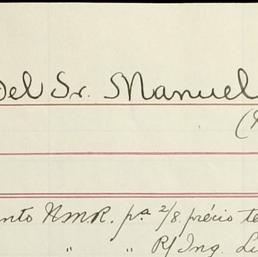 Del Sr. Manuel
(
nto N.M.R. pª 2/8 précio te
" " P/ Ing. Lu